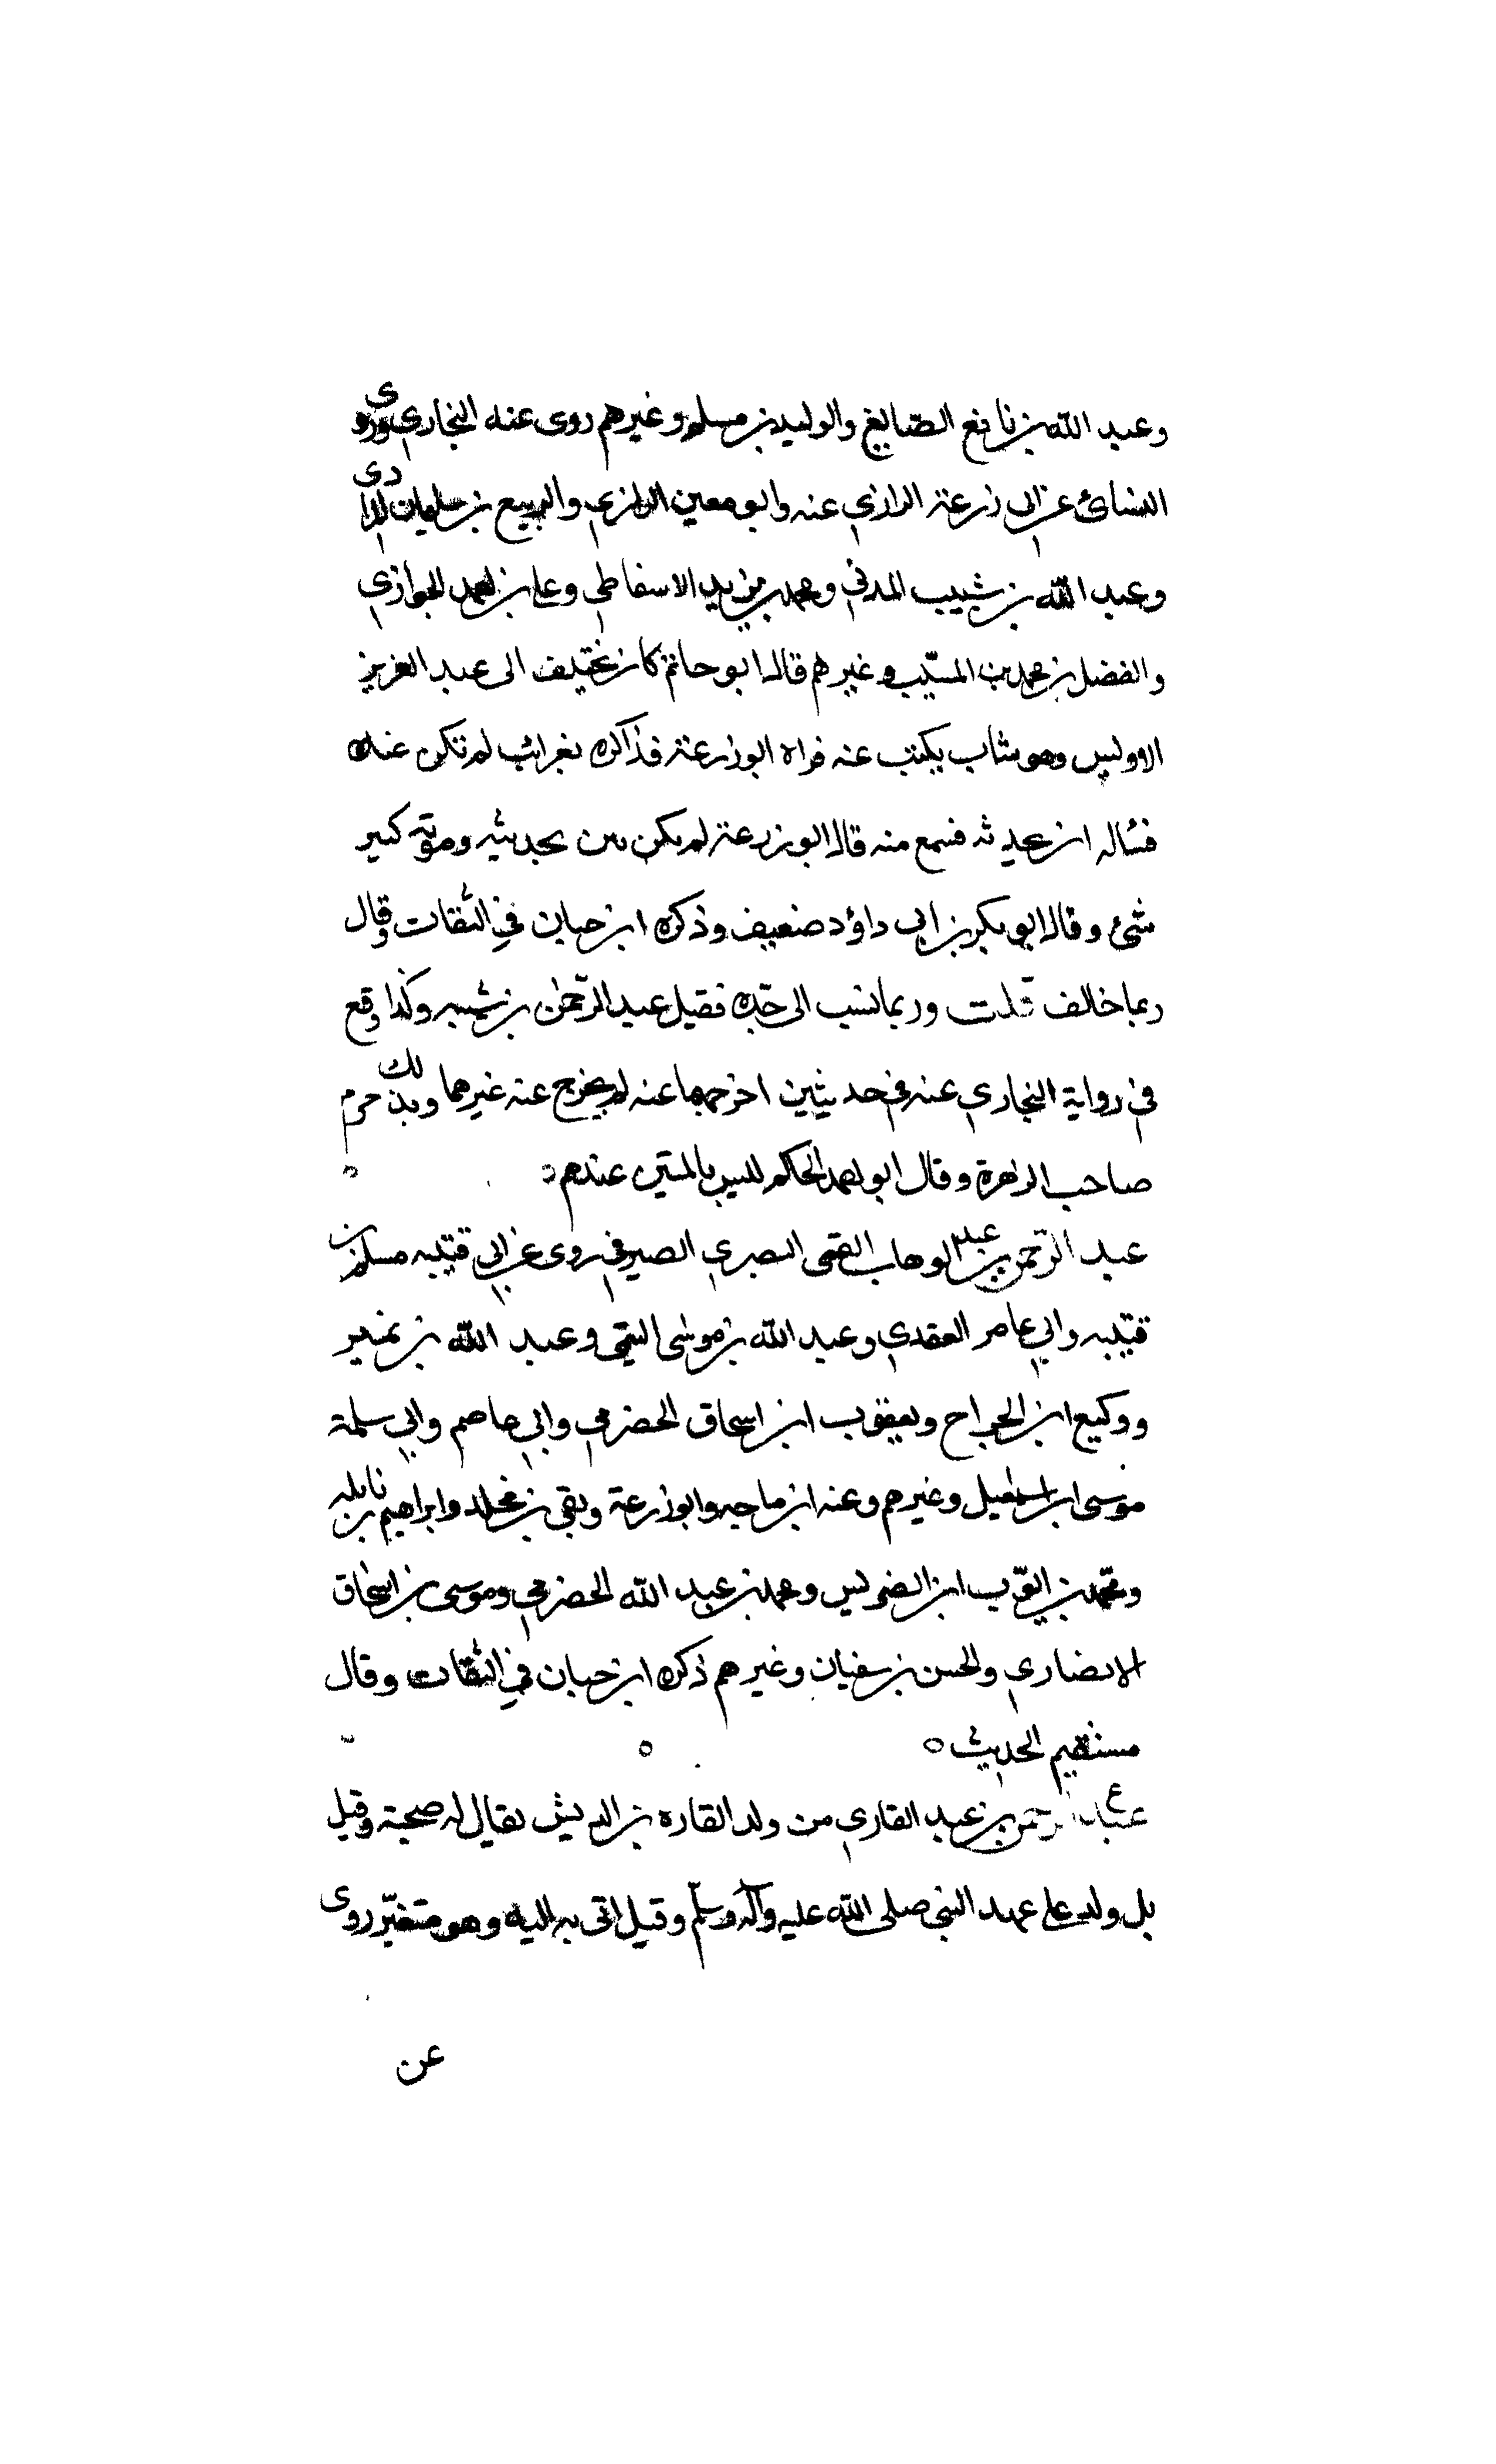 وعبد الله بن نافع الصايغ والوليد بن مسلم وغيرهم روى عنه البخاري وروى
النسائ عن ابى زرعة الرازي عنه وابو معين الرازي والربيع بن سليمان المرادى
وعبد الله بن شبيب المدني ومحمد بن يزيد الاسفاطي وعلى بن احمد الجوازي
والفضل بن محمد بن المسيّب وغيرهم قال ابو حاتم كان يختلف الى عبد العزيز
الاويسي وهو شاب يكتب عنه فراه ابو زرعة فذاكره بغرائب لم تكن عنده
فسئاله ان يحدثه فسمع منه قال ابو زرعة لم يكن بين تحديثه وموته كبير
شئ وقال ابو بكر بن ابى داؤد ضعيف وذكره ابن حبان في الثقات وقال
ربما خالف قلت وربما نسب الى جدّه فقيل عبد الرّحمٰن بن شيبه وكذا وقع
في رواية البخاري عنه في حديثين اخرجهما عنه لم يخرج عنه غيرهما وبذلك جزم
صاحب الزهرة وقال ابو احمد الحاكم ليس بالمتين عندهم
عبد الرّحمن بن عبد الوهاب العمى البصري الصيرفي روى عن ابي قتيبه مسلم بن
قتيبه وابي عامر العقدي وعبد الله بن موسٰى التيمى وعبد الله بن نمير
ووكيع ابن الجراح ويعقوب ابن اسحاق الحضرمي وابي عاصم وابي سلمة
موسى ابن اسمعيل وغيرهم وعنه ابن ماجه وابو زرعة وبقى بن مخلد وابراهيم بن نايله
ومحمّد بن ايوّب ابن الضريس ومحمد بن عبد الله الحضرمي وموسى بن اسحاق
الانصاري والحسن بن سفيان وغيرهم ذكره ابن حبان في الثقات وقال
مستقيم الحديث
ع عبد الرحمن بن عبد القاري من ولد القاره بن الديش يقال له صحبة وقيل
بل ولد على عهد النبى صلى الله عليه وآله وسلّم وقيل اتى به اليه وهو صغيّر روى
عن